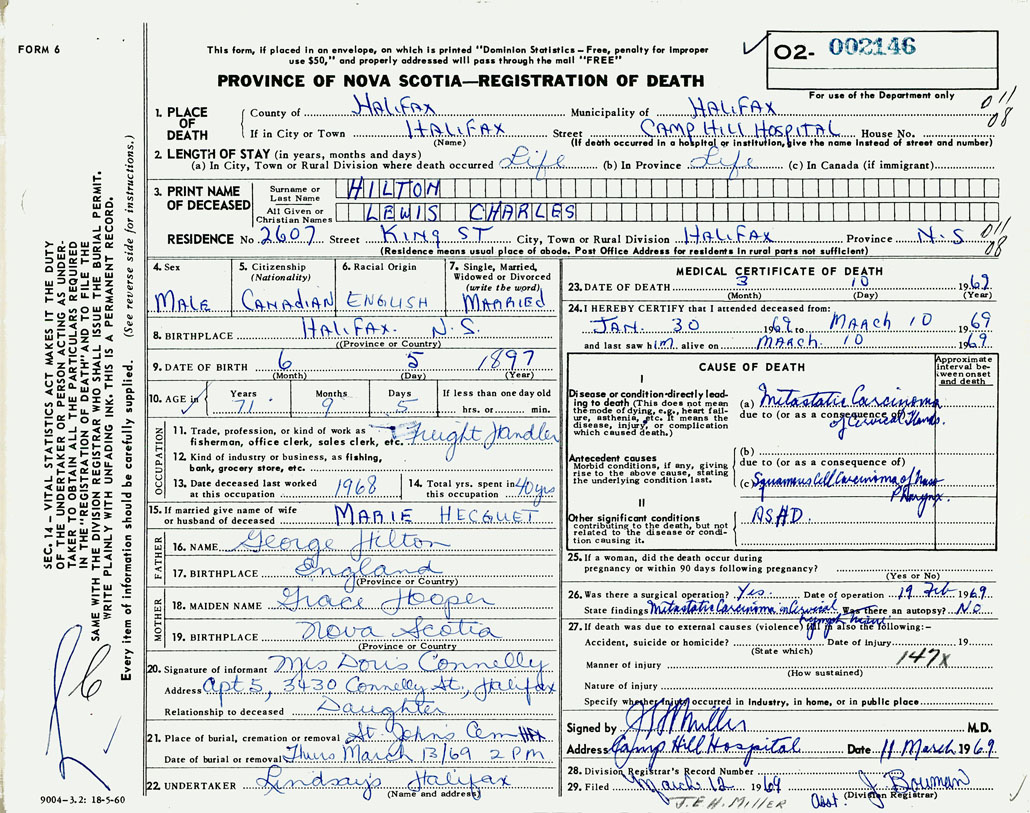 FORM 6
This form, if placed in an envelope, on which is printed "Dominion Statistics—Free, penalty for improper
use $50," and properly addressed will pass through the mail "FREE"
O2- 002146
For use of the Department only
PROVINCE OF NOVA SCOTIA—REGISTRATION OF DEATH
011
08
1. PLACE OF DEATH
County of HALIFAX Municipality of HALIFAX
If in City or Town HALIFAX Street CAMP HILL HOSPITAL House No.
(Name) (If death occurred in a hospital or institution, give the name instead of street and number)
2. LENGTH OF STAY (in years, months and days)
(a) In City, Town or Rural Division where death occurred Life (b) In Province Life (c) In Canada (if immigrant)
3. PRINT NAME OF DECEASED
Surname or Last Name HILTON
All Given or Christian Names LEWIS CHARLES
RESIDENCE No. 2607 Street KING ST City, Town or Rural Division HALIFAX Province N.S
011
08
(Residence means usual place of abode. Post Office Address for residents in rural parts not sufficient)
4. Sex
MALE
5. Citizenship
(Nationality)
CANADIAN
6. Racial Origin
ENGLISH
7. Single, Married,
Widowed or Divorced
(write the word)
MARRIED
8. BIRTHPLACE HALIFAX. N.S.
(Province or Country)
9. DATE OF BIRTH 6 5 1897
(Month) (Day) (Year)
10. AGE
Years Months Days If less than one day old
71 9 5 hrs. or min.
OCCUPATION
11. Trade, profession, or kind of work as
fisherman, office clerk, sales clerk, etc. Freight Handler
12. Kind of industry or business, as fishing,
bank, grocery store, etc.
13. Date deceased last worked
at this occupation 1968
14. Total yrs. spent in
this occupation 40 yrs
15. If married give name of wife
or husband of deceased MARIE HECQUET
FATHER
16. NAME George Hilton
17. BIRTHPLACE England
(Province or Country)
MOTHER
18. MAIDEN NAME Grace Hooper
19. BIRTHPLACE Nova Scotia
(Province or Country)
20. Signature of informant Mrs Doris Connelly
Address Apt 5, 3430 Connelly St, Halifax
Relationship to deceased Daughter
21. Place of burial, cremation or removal St. Johns Cem HFX
Date of burial or removal Thurs March 13/69 2 PM
22. UNDERTAKER Lindsay's Halifax
(Name and address)
MEDICAL CERTIFICATE OF DEATH
23. DATE OF DEATH 3 10 1969
(Month) (Day) (Year)
24. I HEREBY CERTIFY that I attended deceased from:
JAN. 30 1969 to MARCH 10 1969
and last saw him alive on MARCH. 10 1969
CAUSE OF DEATH
Approximate
interval be-
tween onset
and death
I
Disease or condition directly lead-
ing to death (This does not mean
the mode of dying, e.g., heart fail-
ure, asthenia, etc. It means the
disease, injury, or complication
which caused death.)
(a) Mitastatic Carcinoma
due to (or as a consequence of)
of Cervical Glands.
Antecedent causes
Morbid conditions, if any, giving
rise to the above cause, stating
the underlying condition last.
(b)
due to (or as a consequence of)
(c) Squamous Cell Carcinoma of Naso
Pharynx.
II
Other significant conditions
contributing to the death, but not
related to the disease or condi-
tion causing it.
ASHD.
25. If a woman, did the death occur during
pregnancy or within 90 days following pregnancy?
(Yes or No)
26. Was there a surgical operation? Yes. Date of operation 19 Feb 1969.
State findings Mitastatic Carcinoma in Cervical Was there an autopsy? NO
lymph
27. If death was due to external causes (violence) fill in also the following:—
Accident, suicide or homicide? Date of injury 19
(State which)
147x
Manner of injury
(How sustained)
Nature of injury
Specify whether injury occurred in Industry, in home, or in public place
Signed by J H Miller M.D.
Address Camp Hill Hospital Date 11 March 1969.
28. Division Registrar's Record Number
29. Filed March 12 1969 Asst. J. Bowman
(Division Registrar)
J.E.H. MILLER
SEC. 14 – VITAL STATISTICS ACT MAKES IT THE DUTY
OF THE UNDERTAKER OR PERSON ACTING AS UNDER-
TAKER TO OBTAIN ALL THE PARTICULARS REQUIRED
IN THE "REGISTRATION OF DEATH" AND TO FILE THE
SAME WITH THE DIVISION REGISTRAR WHO SHALL ISSUE THE BURIAL PERMIT.
WRITE PLAINLY WITH UNFADING INK. THIS IS A PERMANENT RECORD.
Every item of information should be carefully supplied. (See reverse side for instructions.)
9004–3.2: 18-5-60